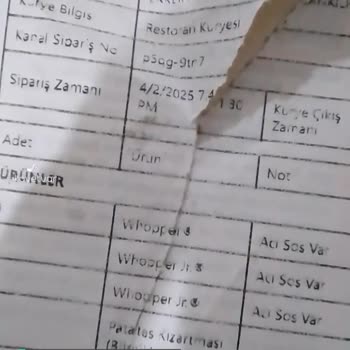 Kurye Bilgis
Restoran Kuryesi
Kanal Sipariş No
Sipariş Zamanı
4/2/2025
PM
Kurye Çıkış
Zamanı
Adet
Ürün
Not
ÜRÜNLER
Whopper®
Acı Sos Var
Whopper Jr.®
Acı Sos Var
Whopper Jr.®
Acı Sos Var
Patates Kızartması